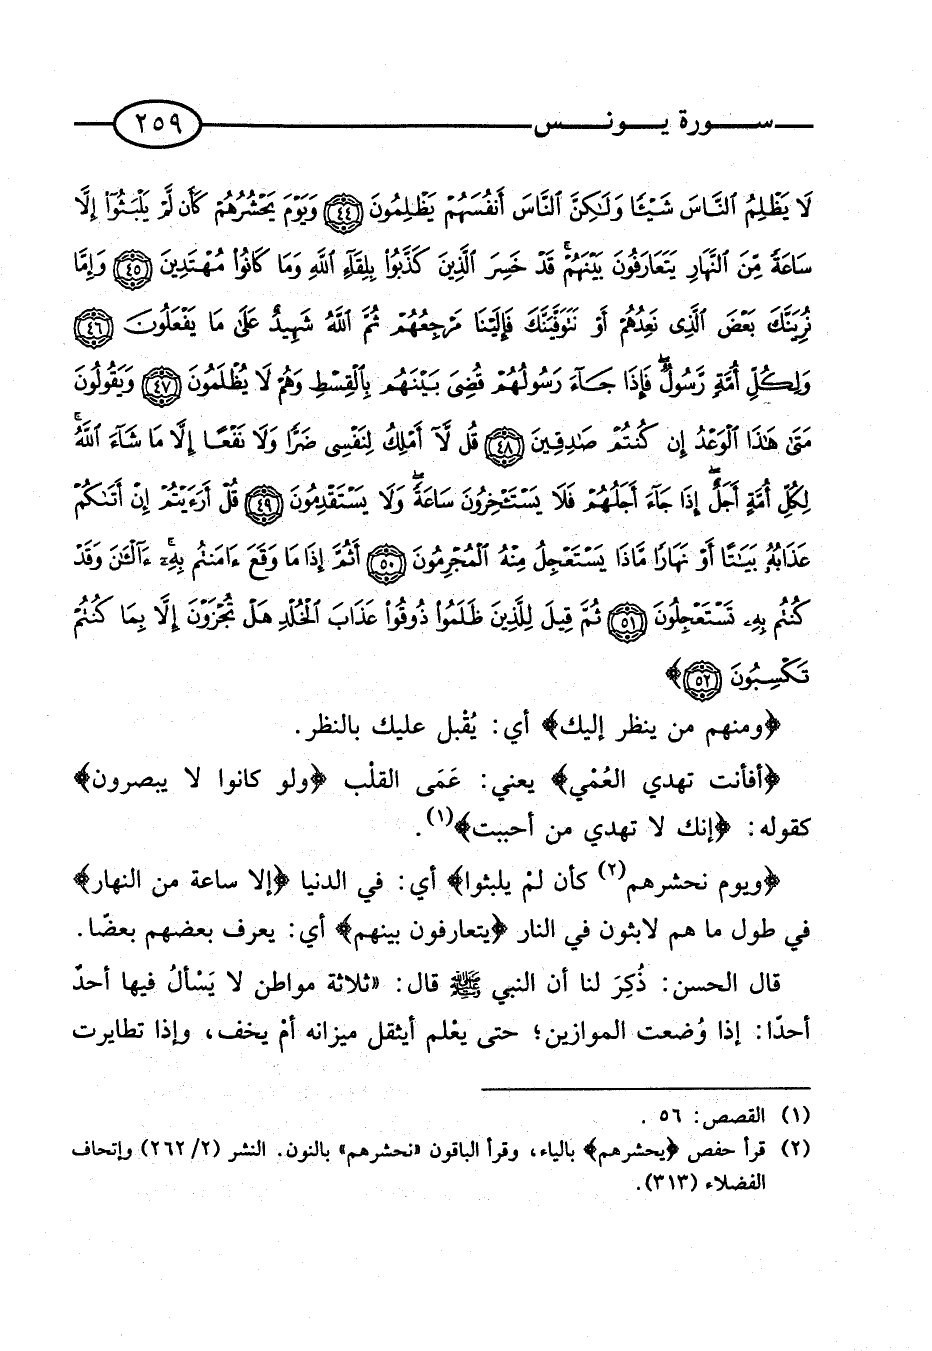 سورة يونس ٢٥٩
لَا يَظْلِمُ ٱلنَّاسَ شَيْـًٔا وَلَٰكِنَّ ٱلنَّاسَ أَنفُسَهُمْ يَظْلِمُونَ ٤٤ وَيَوْمَ يَحْشُرُهُمْ كَأَن لَّمْ يَلْبَثُوٓا۟ إِلَّا
سَاعَةً مِّنَ ٱلنَّهَارِ يَتَعَارَفُونَ بَيْنَهُمْ ۚ قَدْ خَسِرَ ٱلَّذِينَ كَذَّبُوا۟ بِلِقَآءِ ٱللَّهِ وَمَا كَانُوا۟ مُهْتَدِينَ ٤٥ وَإِمَّا
نُرِيَنَّكَ بَعْضَ ٱلَّذِى نَعِدُهُمْ أَوْ نَتَوَفَّيَنَّكَ فَإِلَيْنَا مَرْجِعُهُمْ ثُمَّ ٱللَّهُ شَهِيدٌ عَلَىٰ مَا يَفْعَلُونَ ٤٦
وَلِكُلِّ أُمَّةٍ رَّسُولٌ ۖ فَإِذَا جَآءَ رَسُولُهُمْ قُضِىَ بَيْنَهُم بِٱلْقِسْطِ وَهُمْ لَا يُظْلَمُونَ ٤٧ وَيَقُولُونَ
مَتَىٰ هَٰذَا ٱلْوَعْدُ إِن كُنتُمْ صَٰدِقِينَ ٤٨ قُل لَّآ أَمْلِكُ لِنَفْسِى ضَرًّا وَلَا نَفْعًا إِلَّا مَا شَآءَ ٱللَّهُ ۗ
لِكُلِّ أُمَّةٍ أَجَلٌ ۖ إِذَا جَآءَ أَجَلُهُمْ فَلَا يَسْتَـْٔخِرُونَ سَاعَةً ۖ وَلَا يَسْتَقْدِمُونَ ٤٩ قُلْ أَرَءَيْتُمْ إِنْ أَتَىٰكُمْ
عَذَابُهُۥ بَيَٰتًا أَوْ نَهَارًا مَّاذَا يَسْتَعْجِلُ مِنْهُ ٱلْمُجْرِمُونَ ٥٠ أَثُمَّ إِذَا مَا وَقَعَ ءَامَنتُم بِهِۦٓ ۚ ءَآلْـَٰٔنَ وَقَدْ
كُنتُم بِهِۦ تَسْتَعْجِلُونَ ٥١ ثُمَّ قِيلَ لِلَّذِينَ ظَلَمُوا۟ ذُوقُوا۟ عَذَابَ ٱلْخُلْدِ هَلْ تُجْزَوْنَ إِلَّا بِمَا كُنتُمْ
تَكْسِبُونَ ٥٢﴾
﴿ومنهم من ينظر إليك﴾ أي: يُقْبل عليك بالنظر.
﴿أفأنت تهدي العُمْي﴾ يعني: عَمَى القلْب ﴿ولو كانوا لا يبصرون﴾
كقوله: ﴿إنك لا تهدي من أحببت﴾(١).
﴿ويوم نحشرهم(٢) كأن لمْ يلبثوا﴾ أي: في الدنيا ﴿إلا ساعة من النهار﴾
في طول ما هم لابثون في النار ﴿يتعارفون بينهم﴾ أي: يعرف بعضهم بعضًا.
قال الحسن: ذُكِرَ لنا أن النبي ﷺ قال: «ثلاثة مواطن لا يَسْألُ فيها أحدٌ
أحدًا: إذا وُضعت الموازين؛ حتى يعْلم أيثقل ميزانه أمْ يخف، وإذا تطايرت
(١) القصص: ٥٦ .
(٢) قرأ حفص ﴿يحشرهم﴾ بالياء، وقرأ الباقون «نحشرهم» بالنون. النشر (٢/ ٢٦٢) وإتحاف
الفضلاء (٣١٣).